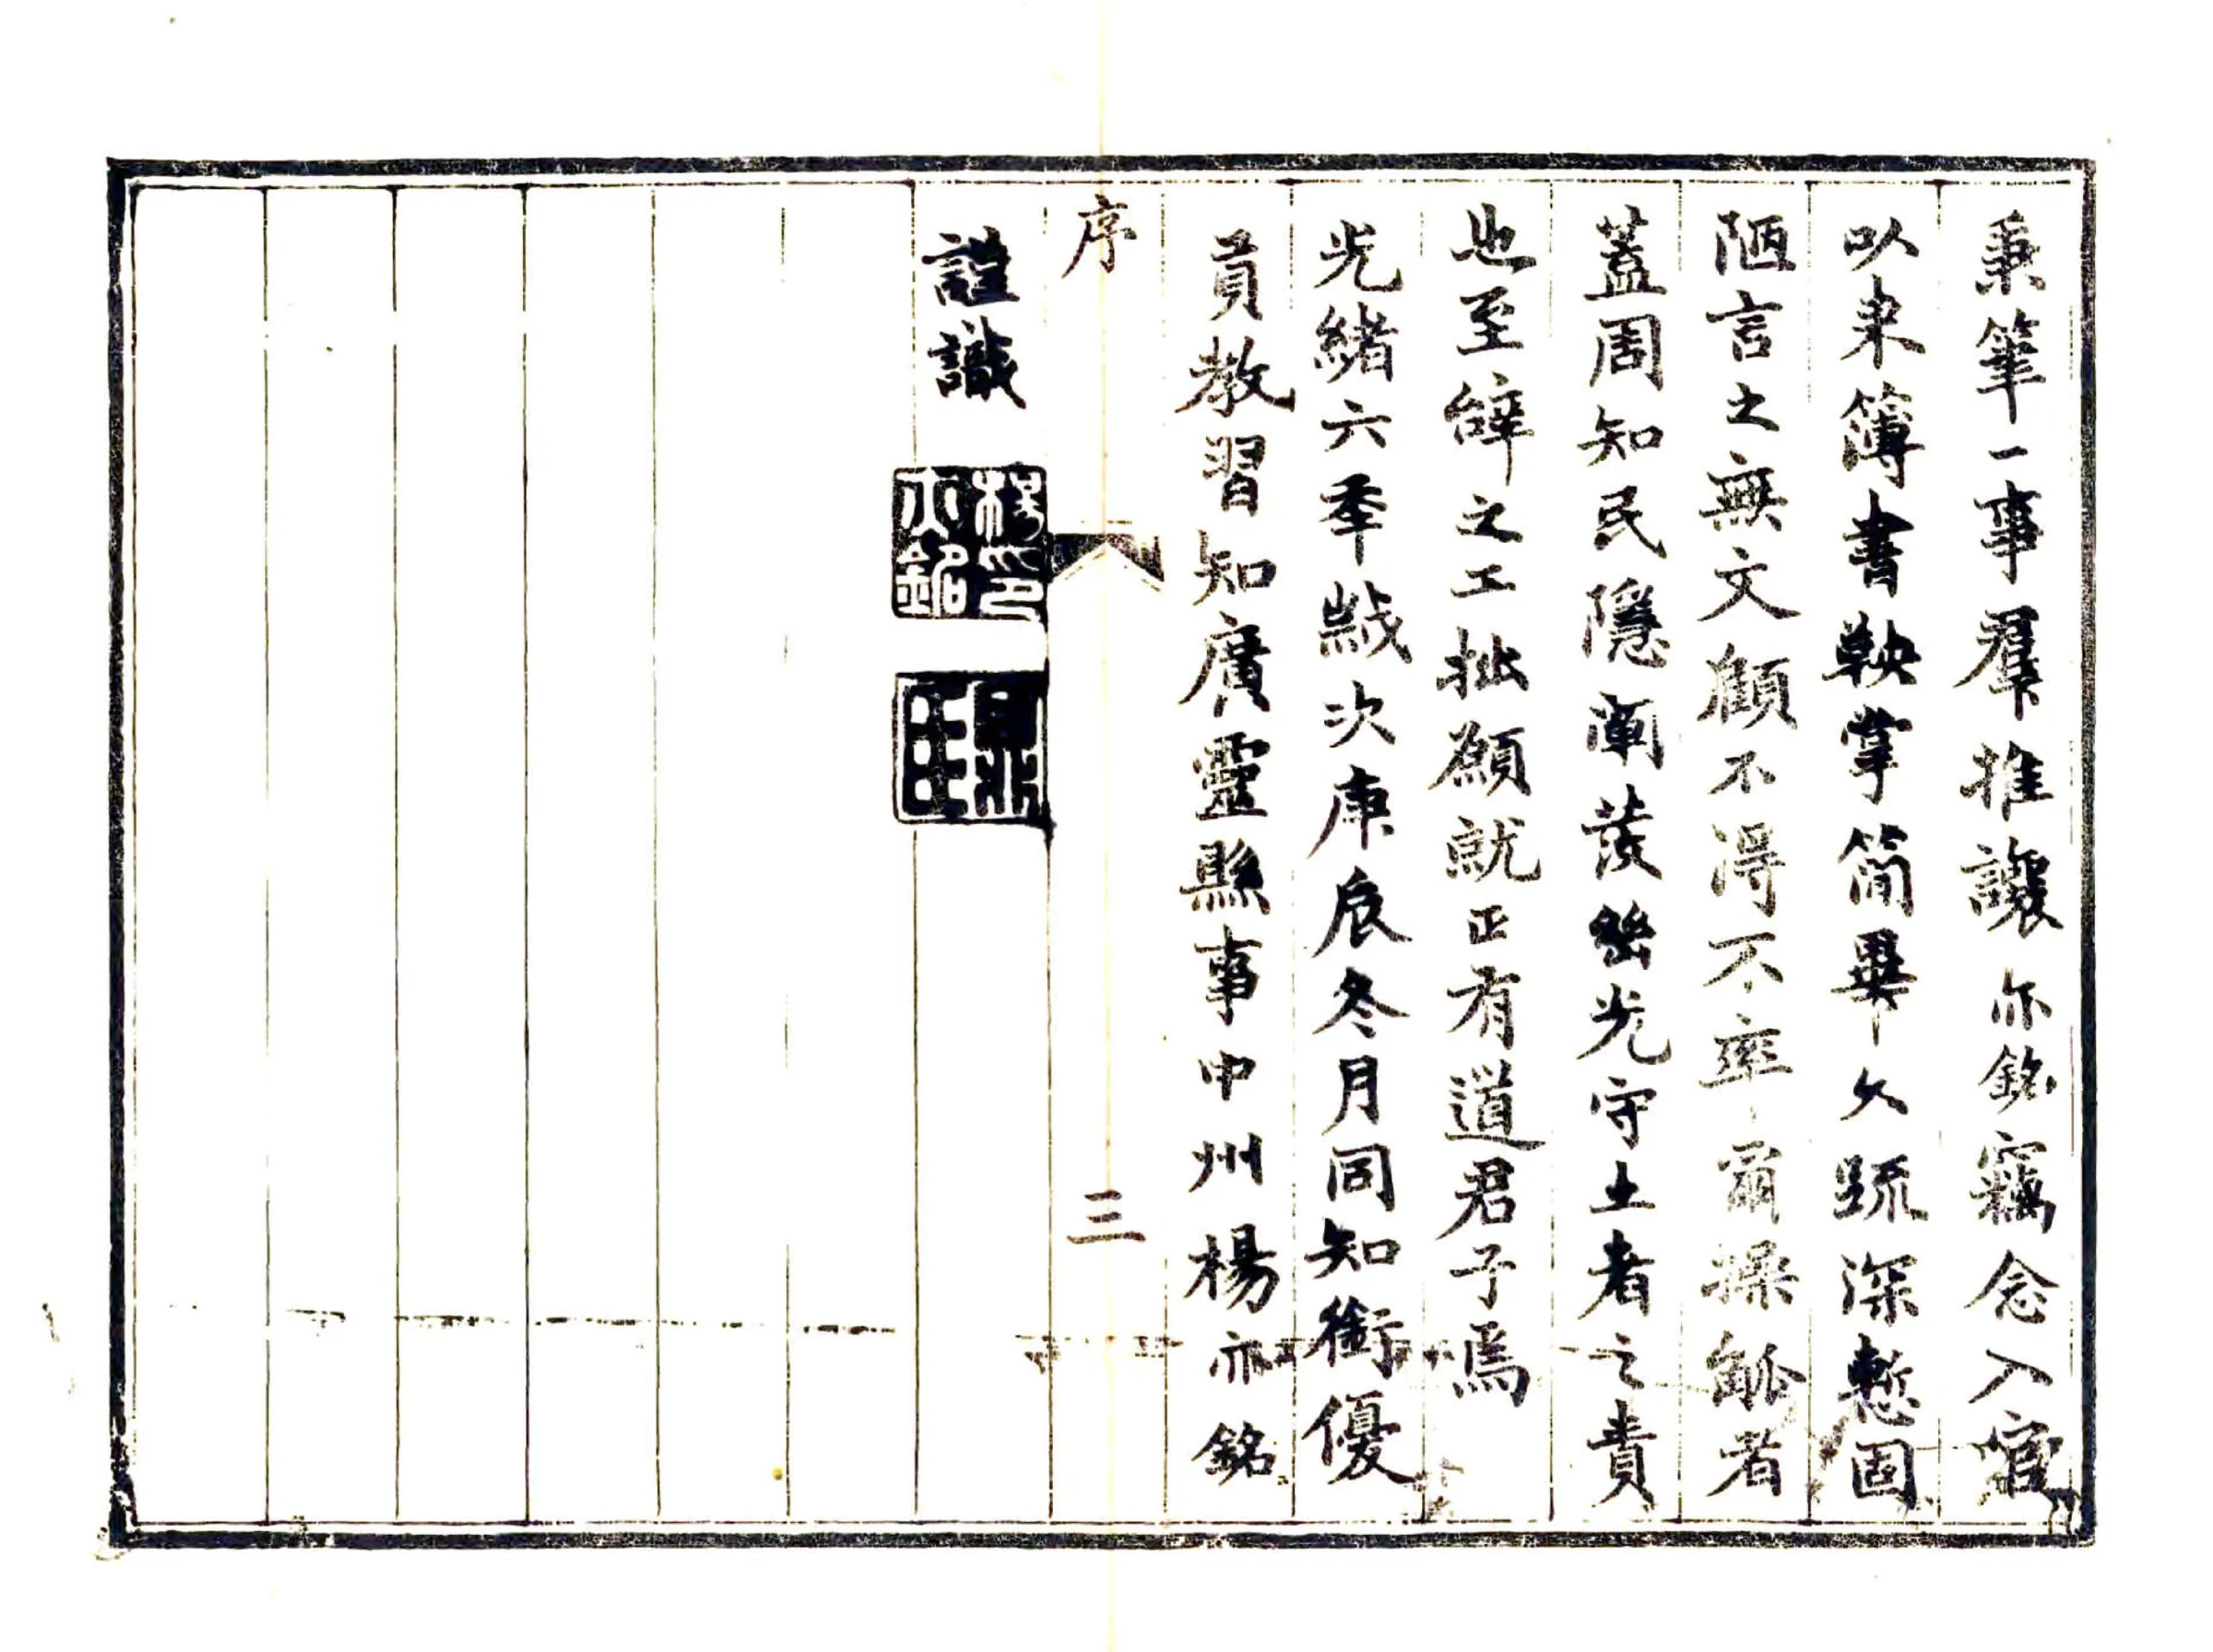 秉筆一事羣推讓亦銘竊念入官
以來簿書鞅掌簡畢久疏深慙固
陋言之無文顧不得不率爾操觚者
蓋周知民隱闡發幽光守土者之責
也至辭之工拙願就正有道君子焉
光緒六年歲次庚辰冬月同知銜優
貢教習知廣靈縣事中州楊亦銘
序
三
謹識
楊印亦銘
鼎臣